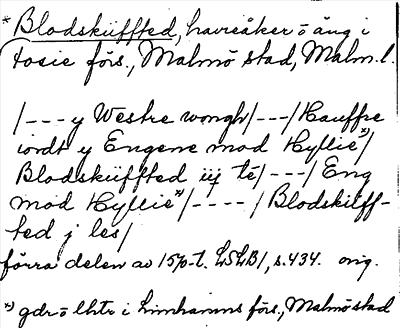 * Blodskiiffted, havreåker o äng i
Fosie förs., Malmö stad, Malm. l.
/---y Westre wongh/---/Hauffre
iordt y Engene mod Hyllie*)/
Blodskiiffted iij té/---/Eng
mod Hyllie*)/----/Blodskiiff-
ted j les/
förra delen av 1570-t. LSLB1, s. 434. orig.
*) gdr o lhtr i Limhamns förs., Malmö stad